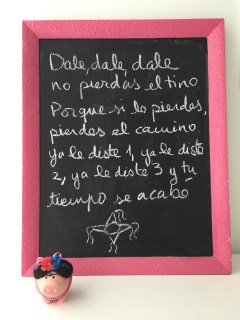 Dale, dale dale
no pierdas el tino
Porque si lo pierdes,
pierdes el camino.
ya le diste 1, ya le diste
2, ya le diste 3 y tú
tiempo se acabó